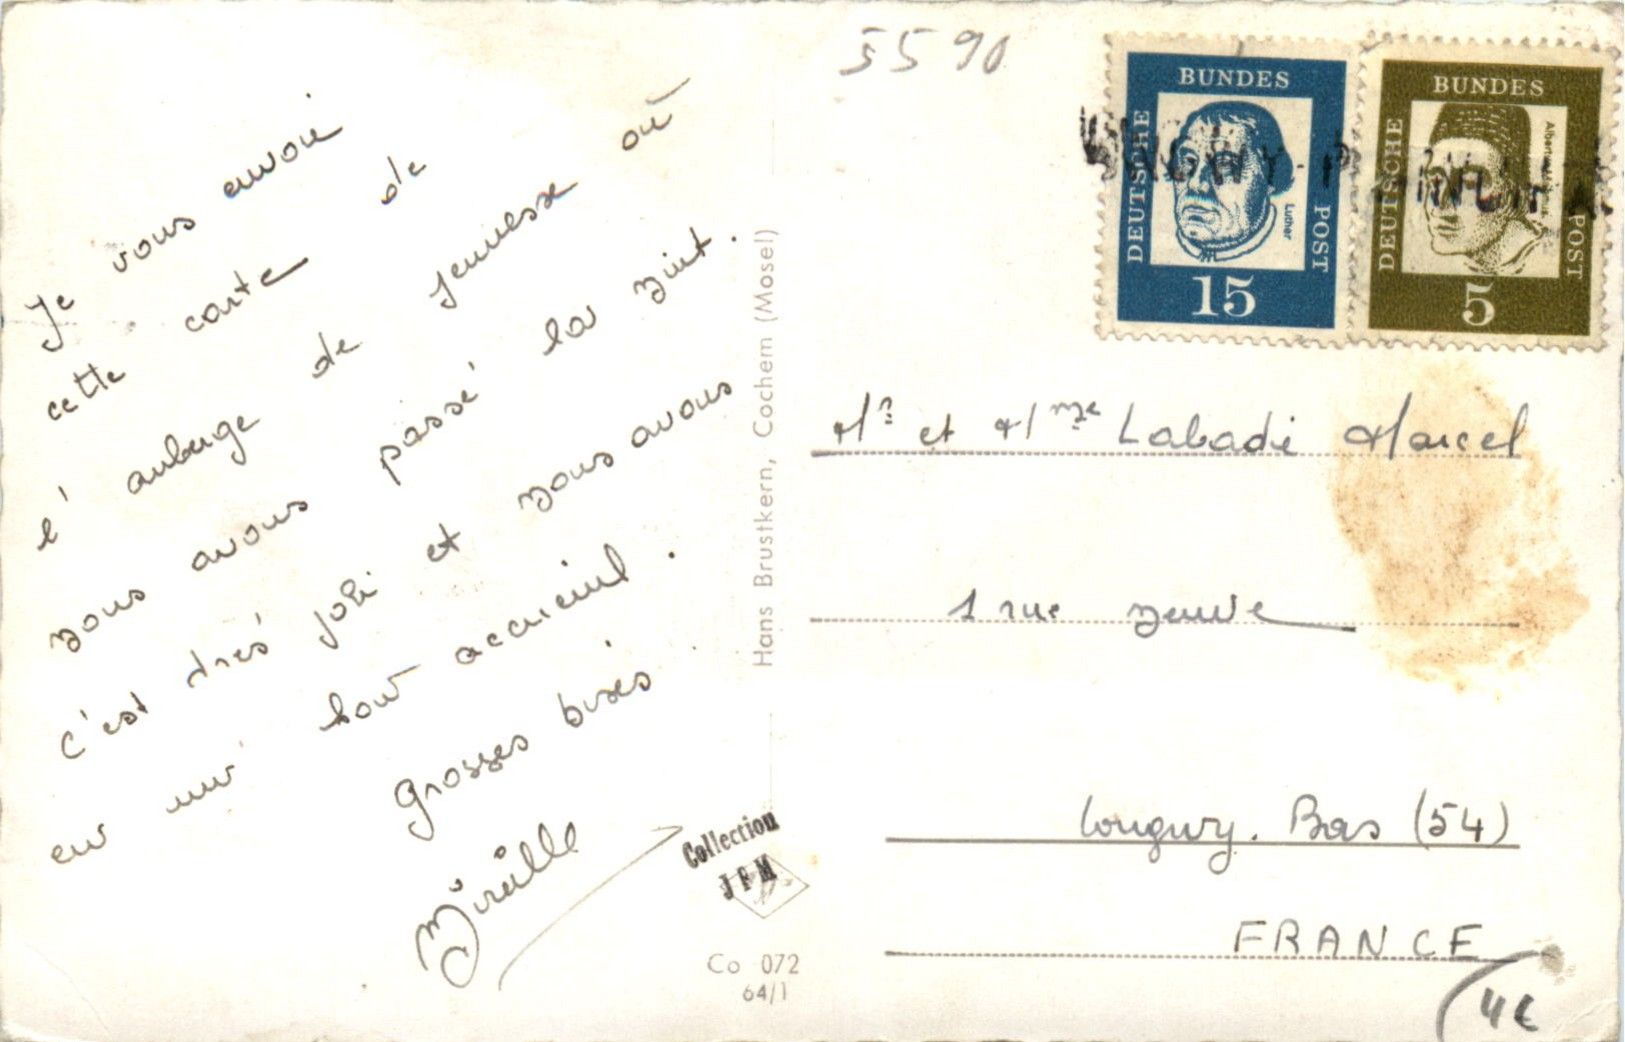 Je vous envoie
cette carte de
l'auberge de jeunesse où
nous avons passé la nuit.
c'est très joli et nous avons
eu un bon accueil.
grosses bises
Mireille
Hans Brustkern, Cochem (Mosel)
Collection
JFM
Co 072
64/1
5590
DEUTSCHE BUNDES POST
Luther
15
DEUTSCHE BUNDES POST
5
Mr et Mme Labadie Marcel
1 rue neuve
Longwy. Bas (54)
FRANCE
4€